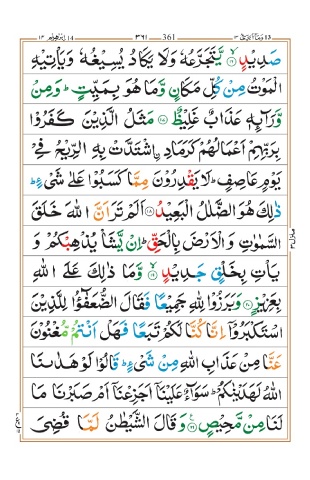 ابرٰهيم ١٤ ٣٦١ 361 وما ابرئ ١٣
صَدِيْدٍ ۙ﴿۱۶﴾ يَّتَجَرَّعُهٗ وَلَا يَكَادُ يُسِيْغُهٗ وَيَاْتِيْهِ
الْمَوْتُ مِنْ كُلِّ مَكَانٍ وَّمَا هُوَ بِمَيِّتٍ ؕ وَمِنْ
وَّرَآئِهٖ عَذَابٌ غَلِيْظٌ ﴿۱۷﴾ مَثَلُ الَّذِيْنَ كَفَرُوْا
بِرَبِّهِمْ اَعْمَالُهُمْ كَرَمَادِ ۨاشْتَدَّتْ بِهِ الرِّيْحُ فِيْ
يَوْمٍ عَاصِفٍ ؕ لَا يَقْدِرُوْنَ مِمَّا كَسَبُوْا عَلٰى شَيْءٍ ؕ
ذٰلِكَ هُوَ الضَّلٰلُ الْبَعِيْدُ ﴿۱۸﴾ اَلَمْ تَرَ اَنَّ اللّٰهَ خَلَقَ
السَّمٰوٰتِ وَالْاَرْضَ بِالْحَقِّ ؕ اِنْ يَّشَاْ يُذْهِبْكُمْ وَ
يَاْتِ بِخَلْقٍ جَدِيْدٍ ۙ﴿۱۹﴾ وَّمَا ذٰلِكَ عَلَى اللّٰهِ
بِعَزِيْزٍ ﴿۲۰﴾ وَبَرَزُوْا لِلّٰهِ جَمِيْعًا فَقَالَ الضُّعَفٰٓؤُا لِلَّذِيْنَ
اسْتَكْبَرُوْٓا اِنَّا كُنَّا لَكُمْ تَبَعًا فَهَلْ اَنْتُمْ مُّغْنُوْنَ
عَنَّا مِنْ عَذَابِ اللّٰهِ مِنْ شَيْءٍ ؕ قَالُوْا لَوْ هَدٰىنَا
اللّٰهُ لَهَدَيْنٰكُمْ ؕ سَوَآءٌ عَلَيْنَآ اَجَزِعْنَآ اَمْ صَبَرْنَا مَا
لَنَا مِنْ مَّحِيْصٍ ﴿۲۱﴾ وَقَالَ الشَّيْطٰنُ لَمَّا قُضِيَ